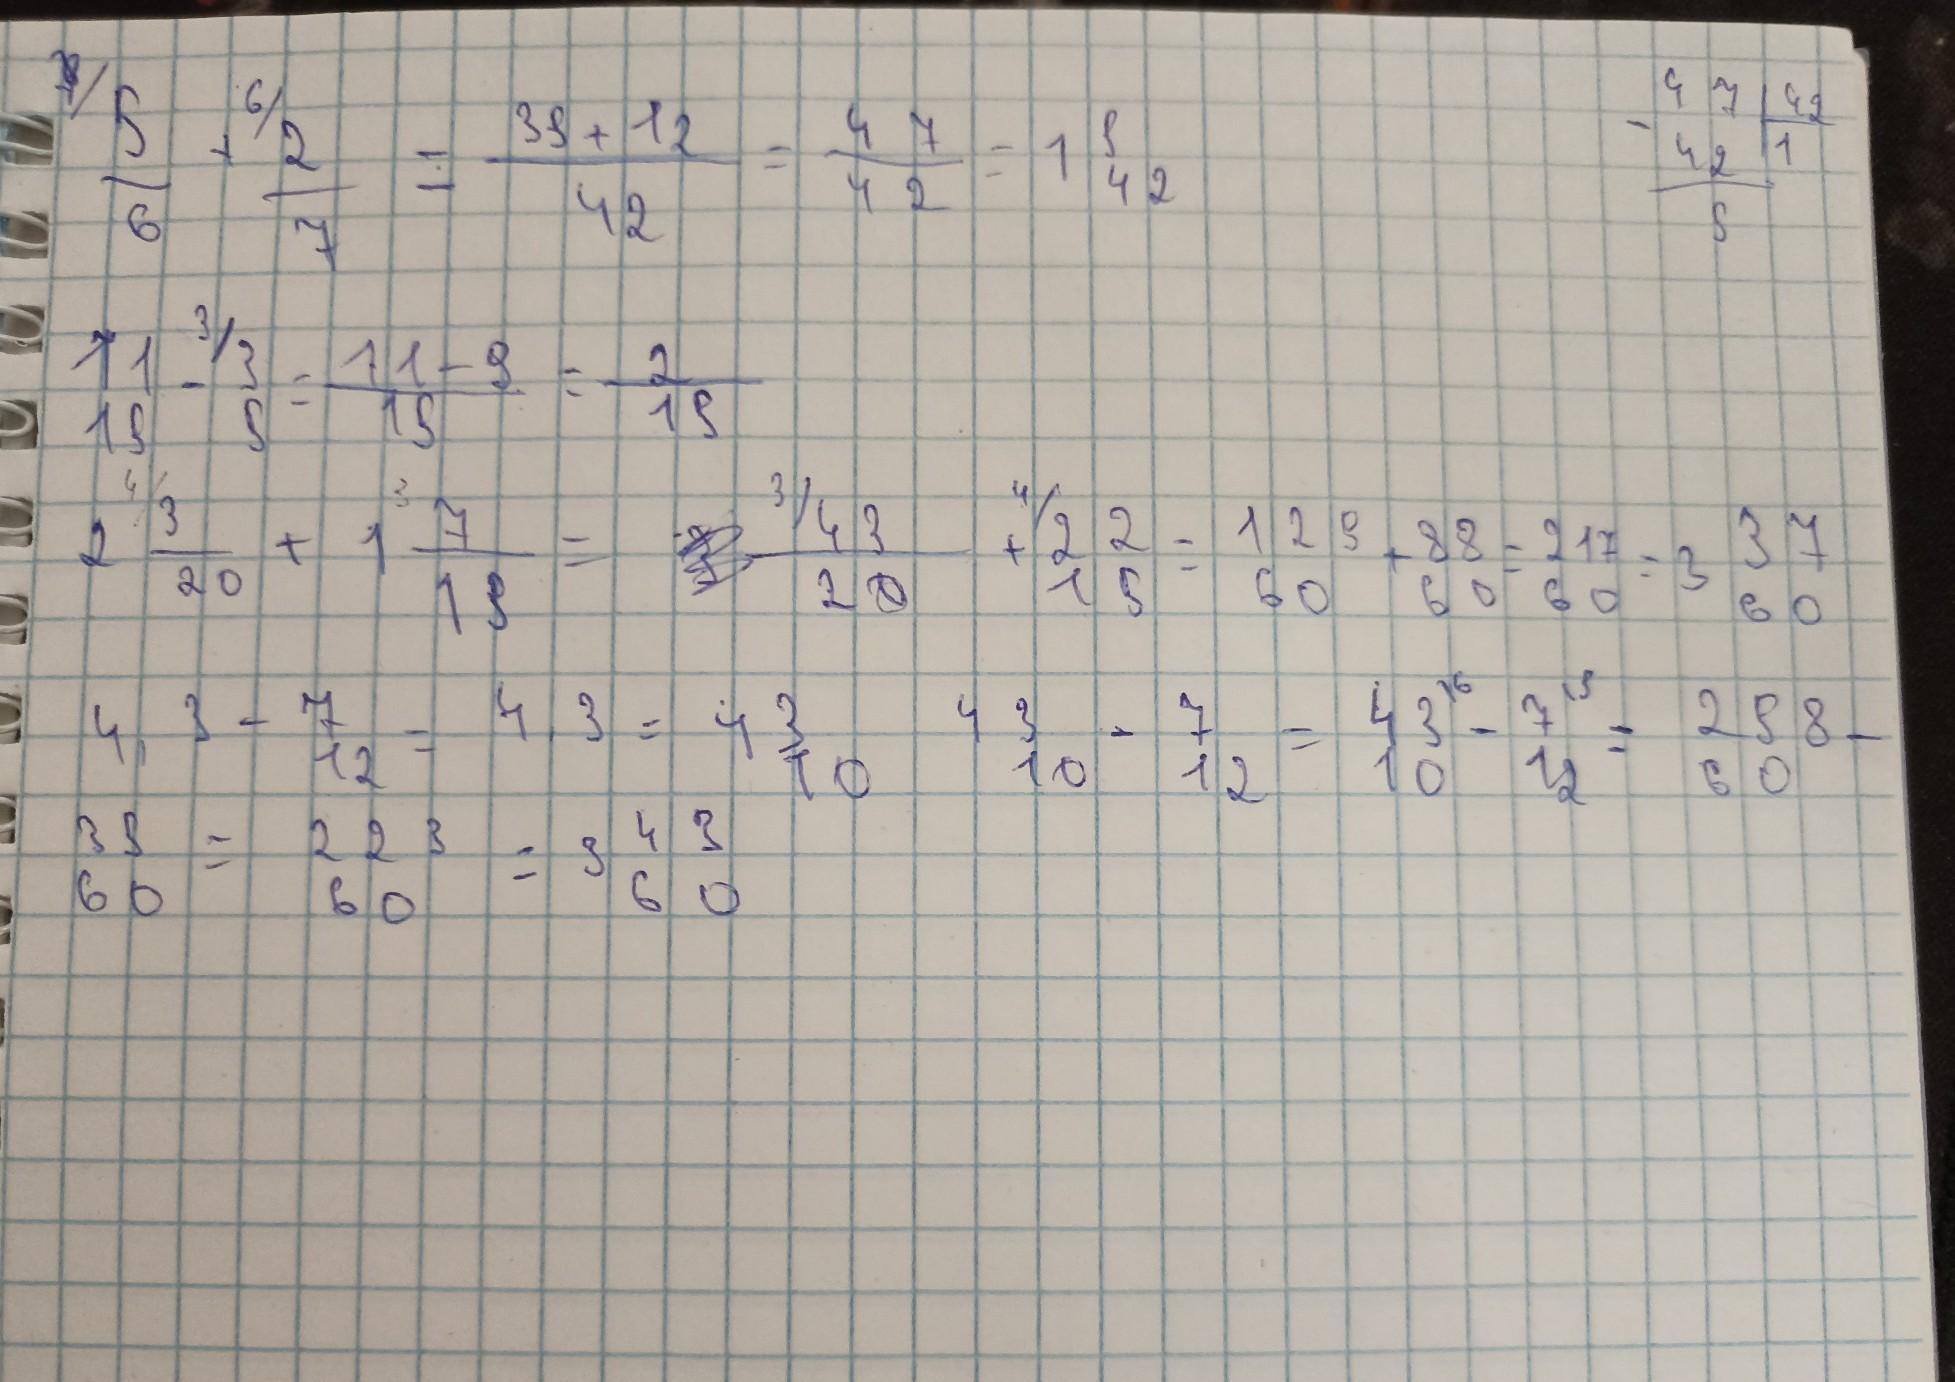 7/5/6 + 6/2/7 = (35+12)/42 = 47/42 = 1 5/42
47 | 42
- 42 | 1
5
11/15 - 3/3/5 = (11-9)/15 = 2/15
2 4/3/20 + 1 3 7/15 = 3/43/20 + 4/22/15 = 129/60 + 88/60 = 217/60 = 3 37/60
4,3 - 7/12 = 4,3 = 4 3/10 43/10 - 7/12 = 43/10 \6 - 7/12 \5 = 258/60 -
35/60 = 223/60 = 3 43/60